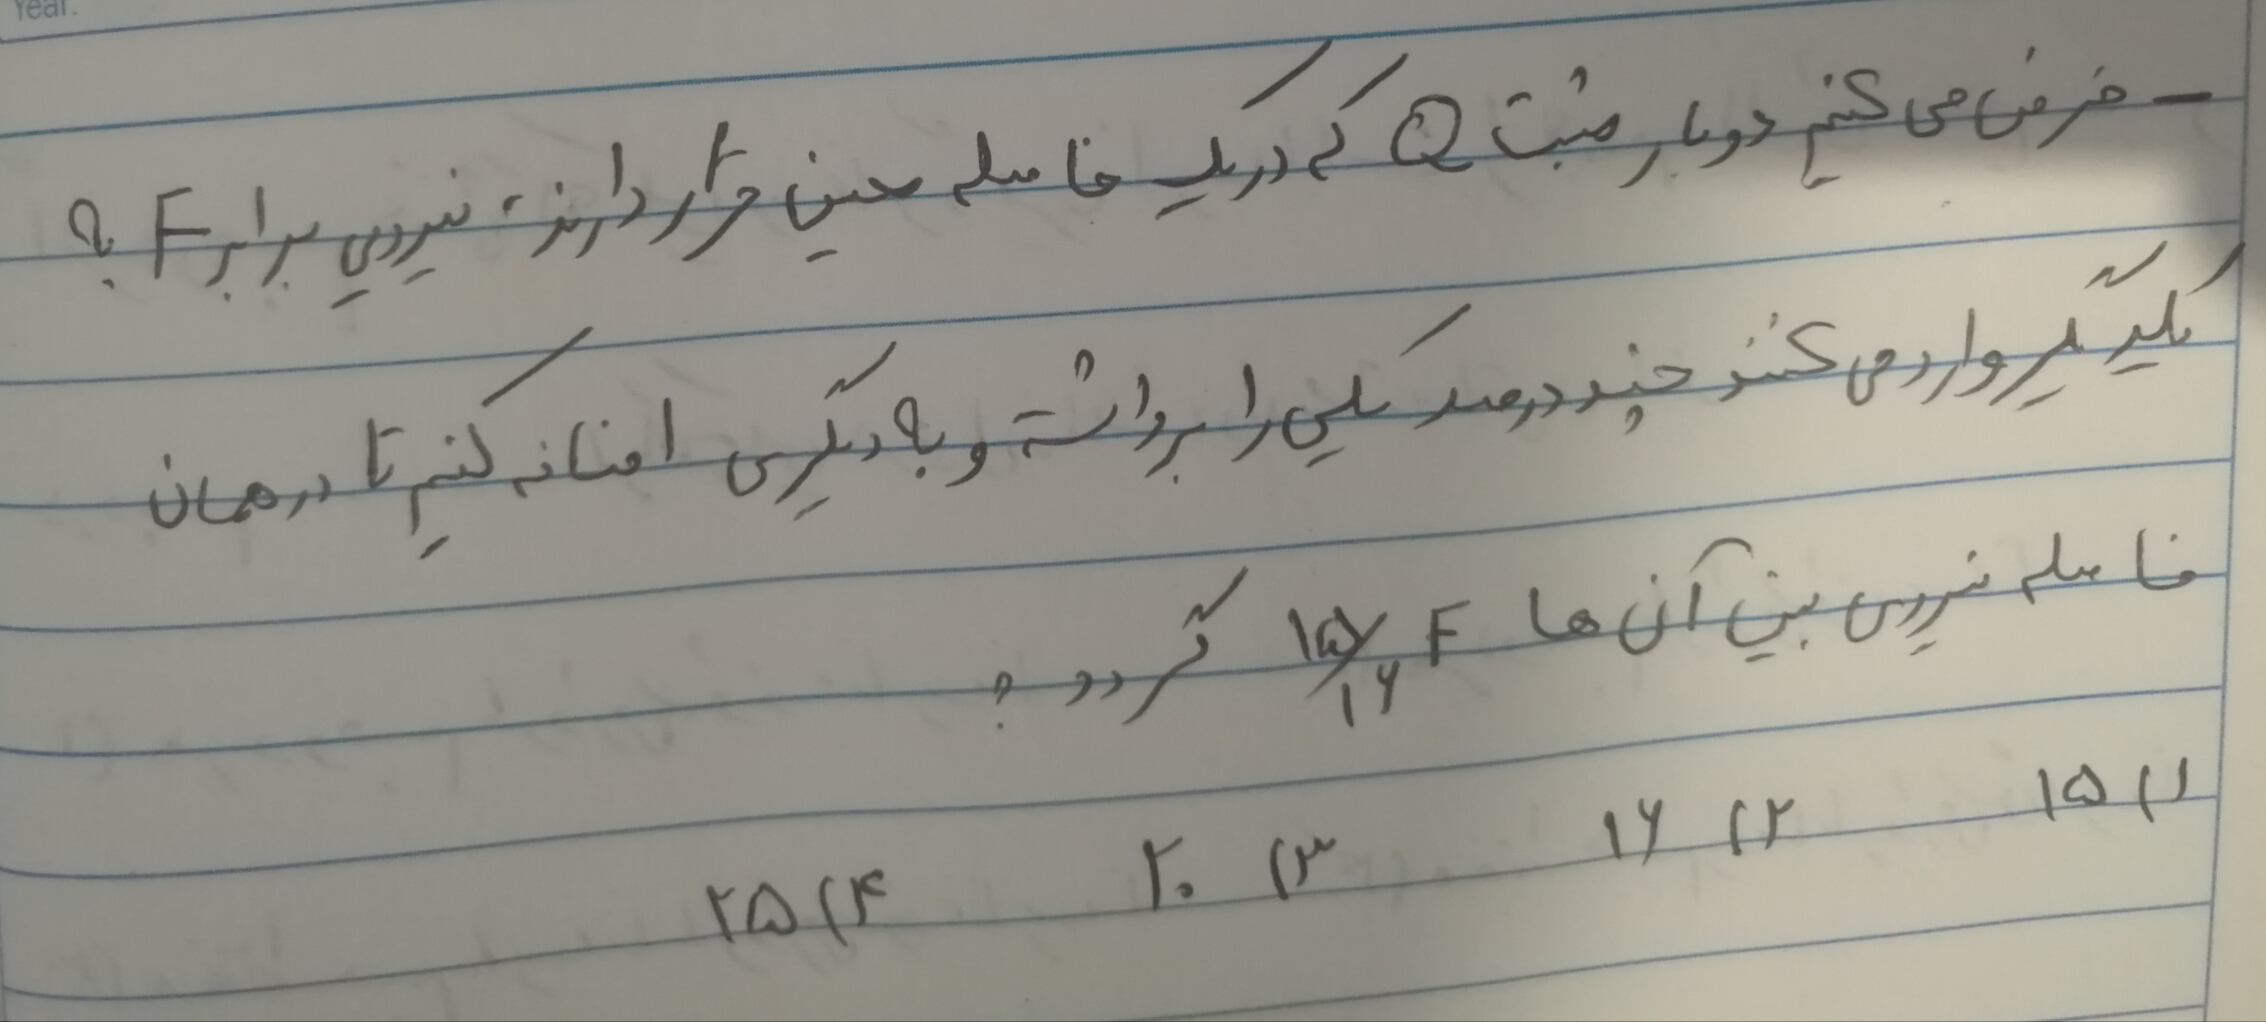 Year:
- فرض می کنیم دو بار مثبت Q که در یک فاصله معین قرار دارند، نیروی برابر F به
یکدیگر وارد می کنند چند درصد یکی را برداشته و به دیگری اضافه کنیم تا در همان
فاصله نیروی بین آن ها F ۱۵/۱۶ گردد؟
۱) ۱۵ ۲) ۱۶ ۳) ۲۰ ۴) ۲۵